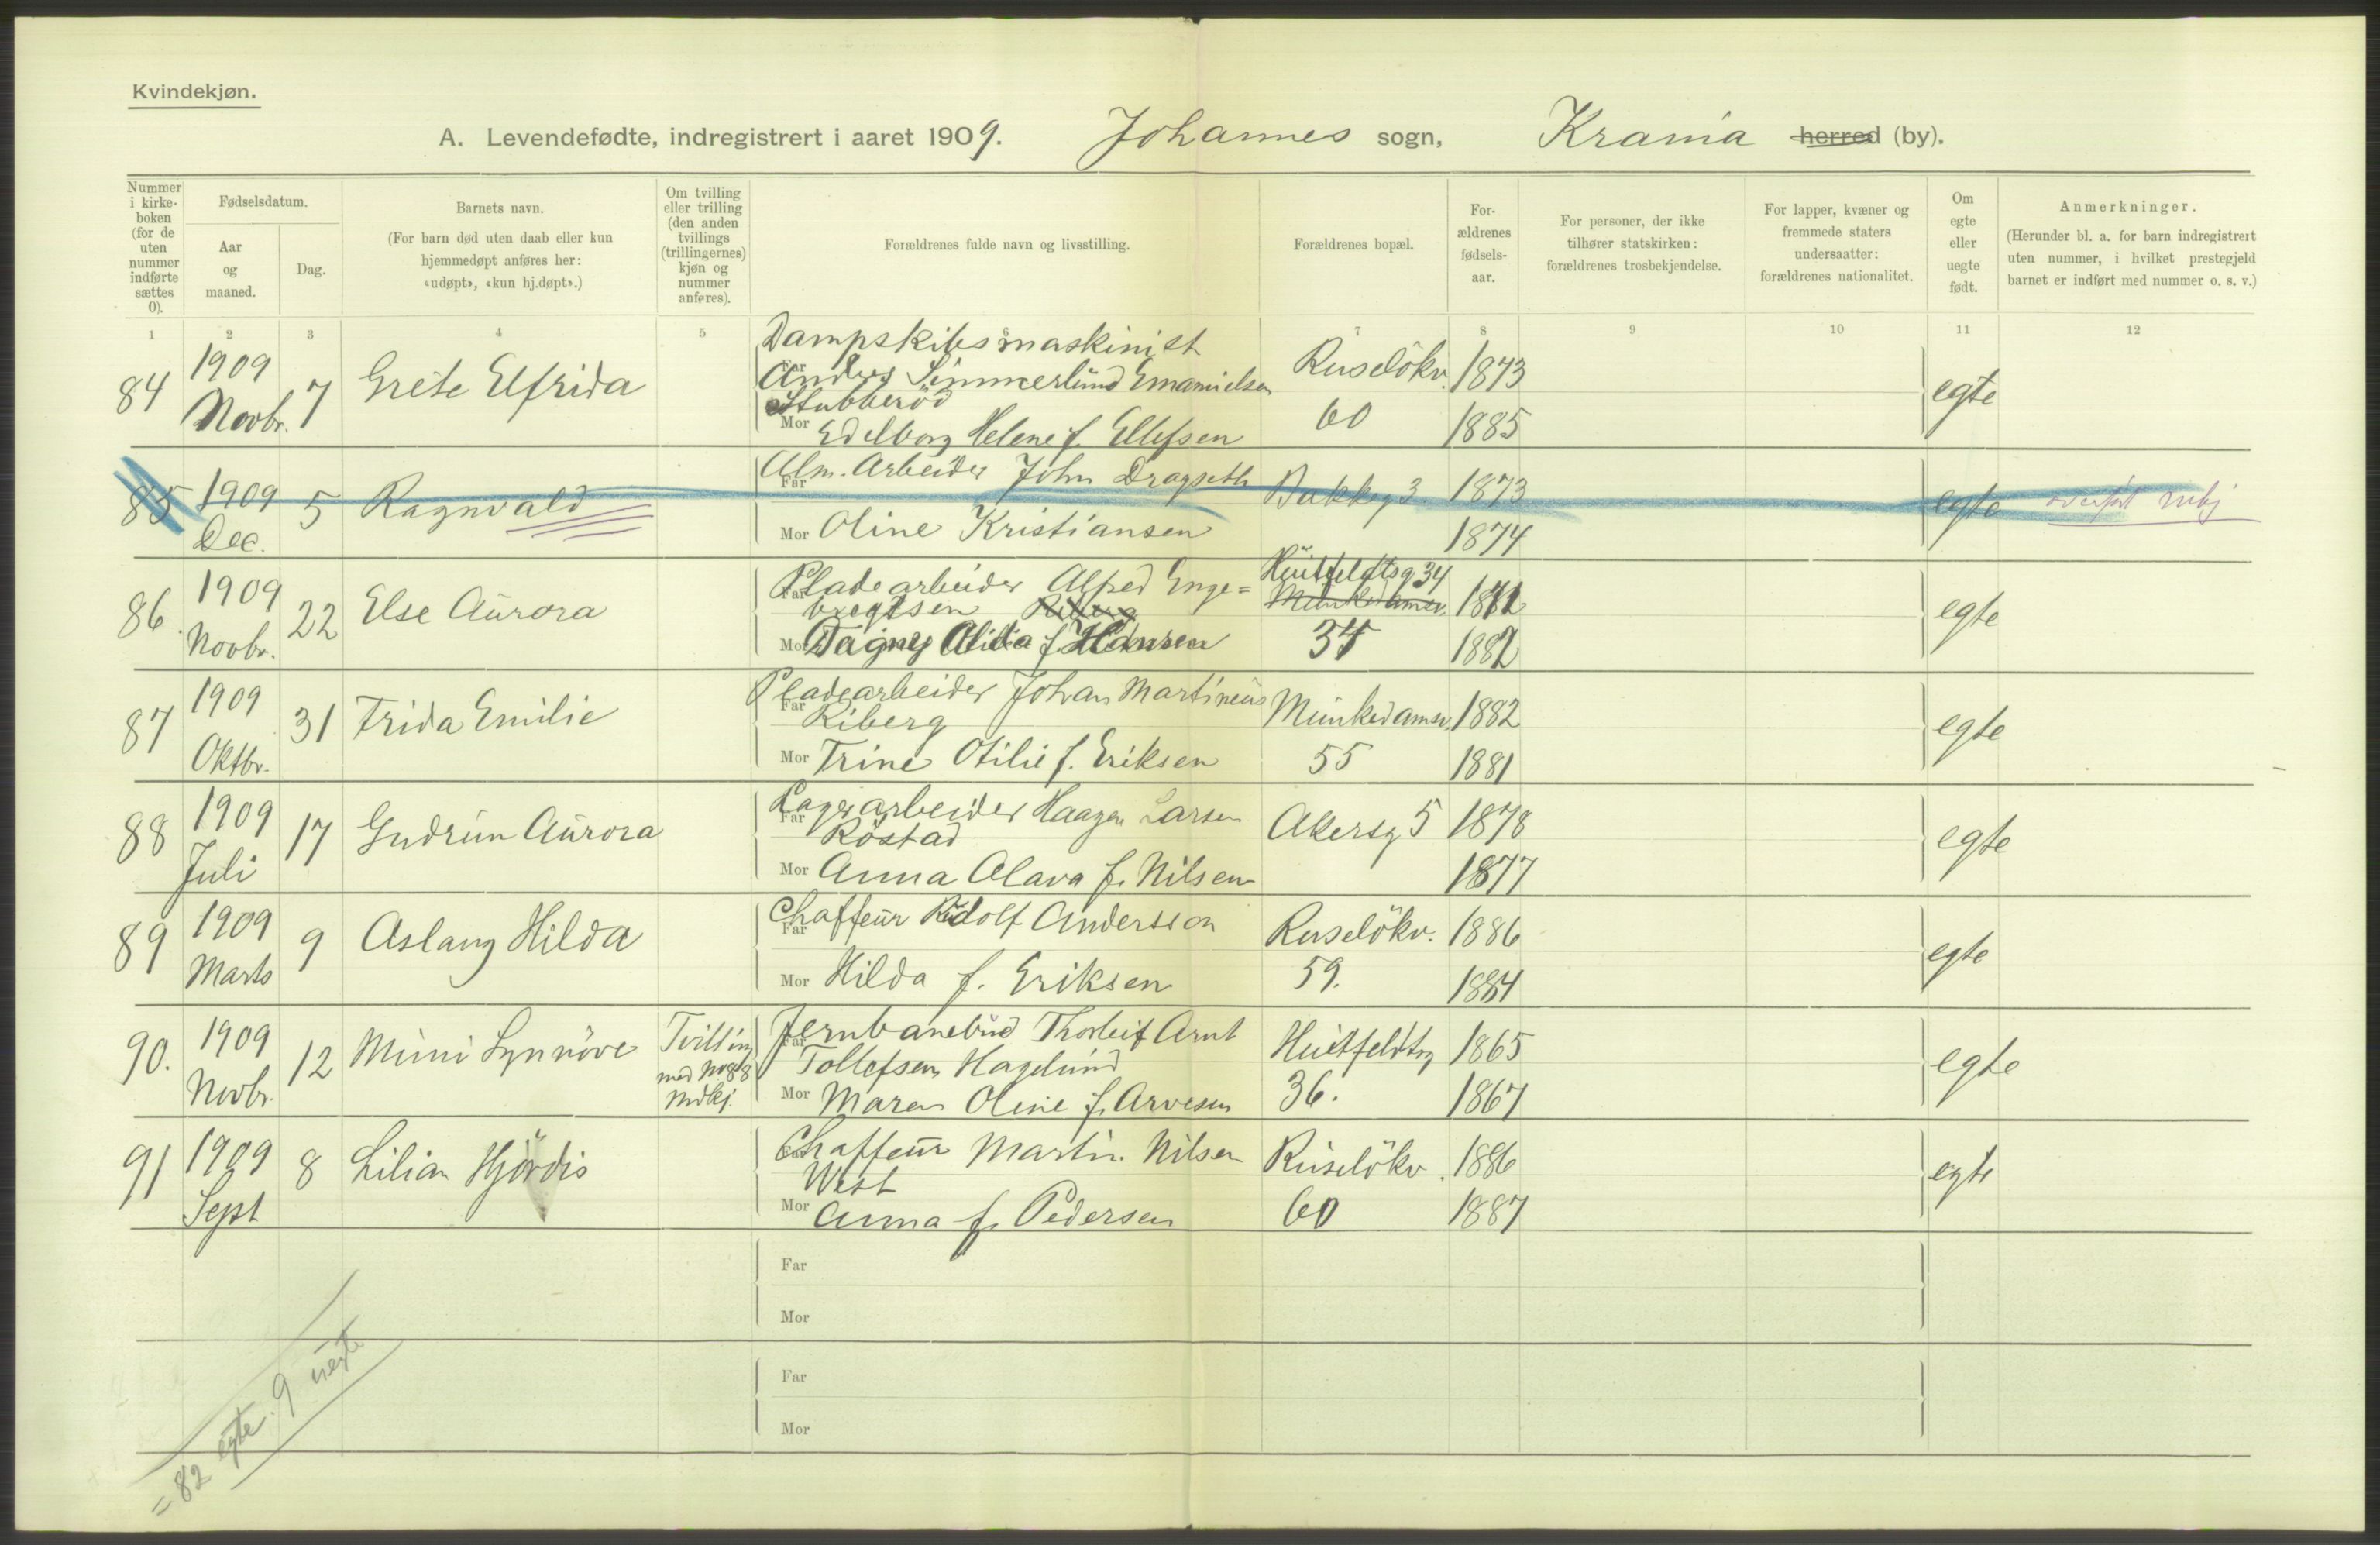 Kvindekjøn.
A. Levendefødte, indregistrert i aaret 1909. Johannes sogn, Krania herred (by).
Nummer i kirke-boken (for de uten nummer indførte sættes 0).
Fødselsdatum.
Aar og maaned.
Dag.
Barnets navn.
(For barn død uten daab eller kun hjemmedøpt anføres her: «udøpt», «kun hj.døpt».)
Om tvilling eller trilling (den anden tvillings (trillingernes) kjøn og nummer anføres).
Forældrenes fulde navn og livsstilling.
Forældrenes bopæl.
For-ældrenes fødsels-aar.
For personer, der ikke tilhører statskirken: forældrenes trosbekjendelse.
For lapper, kvæner og fremmede staters undersaatter: forældrenes nationalitet.
Om egte eller uegte født.
Anmerkninger.
(Herunder bl. a. for barn indregistrert uten nummer, i hvilket prestegjeld barnet er indført med nummer o. s. v.)
1 2 3 4 5 6 7 8 9 10 11 12
84 1909 Novbr. 7 Grete Elfrida
Dampskibsmaskinist
Far Anders Simmerlund Emanuelsen
Stubberöd
Mor Edelborg Helene f. Ellefsen
Ruselökv. 60
1873
1885
egte
85 1909 Dec. 5 Ragnvald
Far Alm. Arbeider John Dragseth
Mor Oline Kristiansen
Bakkeg 3.
1873
1874
egte
86. 1909 Novbr. 22 Else Aurora
Far Pladearbeider Alfred Enge=
bregtsen Riberg
Mor Dagny Alida f. Hansen
Huitfeldtsg 34
Munkedamsv. 34
1882
egte
87 1909 Oktbr. 31 Frida Emilie
Far Pladearbeider Johan Martineus
Riberg
Mor Trine Otilie f. Eriksen
Munkedamsv. 55
1882
1881
egte
88 1909 Juli 17 Gudrun Aurora
Far Lagerarbeider Haagen Larsen
Röstad
Mor Anna Alava f. Nilsen
Akersg 5
1878
1877
egte
89 1909 Marts 9 Aslaug Hilda
Far Chaffeur Rudolf Andersson
Mor Hilda f. Eriksen
Ruselökv. 59.
1886
1884
egte
90. 1909 Novbr. 12 Mimi Synnöve
Tvilling
med No 88
mdkj.
Far Jernbanebud Thorleif Arnt
Tollefsen Hagelund
Mor Maren Oline f. Arvesen
Huitfeldtsg 36.
1865
1867
egte
91 1909 Sept 8 Lilian Hjördis
Far Chaffeur Martin Nilsen
West
Mor Anna f. Pedersen
Ruselökv. 60
1886
1887
egte
Far
Mor
Far
Mor
= 82 egte. 9 uegte